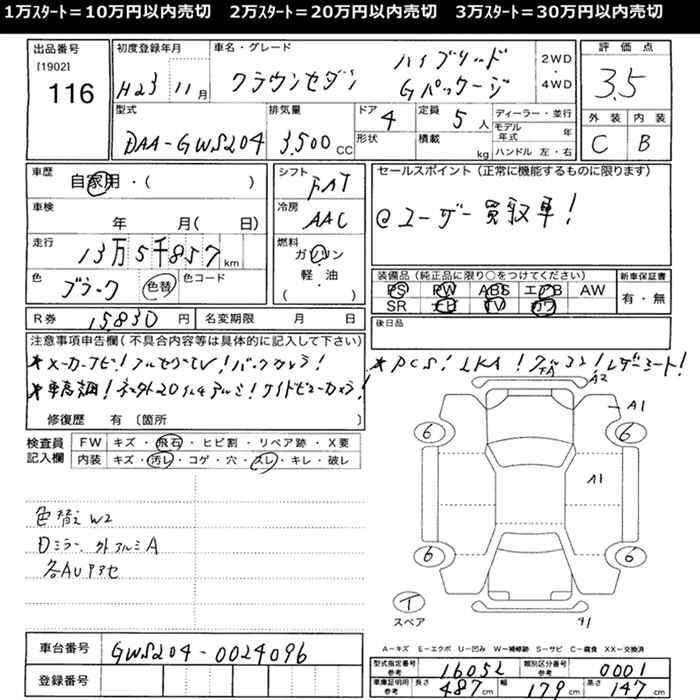 1万スタート＝10万円以内売切　2万スタート＝20万円以内売切　3万スタート＝30万円以内売切
出品番号 初度登録年月 車名・グレード 評価点
[1902] ハイブリッド 2WD
116 H23年 11月 クラウンセダン Gパッケージ ・4WD 3.5
型式 排気量 ドア 4 定員 5人 ディーラー・並行 外装 内装
DAA-GWS204 3,500CC 形状 積載 kg モデル年式 年 C B
ハンドル 左・右
車歴 自家用・( ) シフト FAT セールスポイント (正常に機能するものに限ります)
車検 年 月( 日) 冷房 AAC @ユーザー買取車!
走行 13万5千857km 燃料 ガソリン
色 ブラック 色替 色コード 軽・油 ( ) 装備品 (純正品に限り○をつけてください) 新車保証書
PS PW ABS エアB AW 有・無
SR ナビ TV カワ
R券 15830円 名変期限 月 日 後日品
注意事項申告欄 (不具合内容等は具体的に記入して下さい)
*メーカーナビ! フルセグTV! バックカメラ! *PCS! LKA! レザーシート!
*車高調! 20インチアルミ! ワイドビューカメラ!
修復歴 有 〔箇所 〕
検査員記入欄 FW キズ・飛石・ヒビ割・リペア跡・X要
内装 キズ・汚レ・コゲ・穴・スレ・キレ・破レ
A2
A1
6 6
A1
6 6
色替え W2
Dミラー、外アルミA
各AUアセ
T
スペア
A1
車台番号 GWS204-0024096
登録番号
A－キズ E－エクボ U－凹み W－補修跡 S－サビ C－腐食 XX－交換済
型式指定番号 参考 16052 類別区分番号 参考 0001
車庫証明用 参考 長さ 487cm 幅 179cm 高さ 147cm